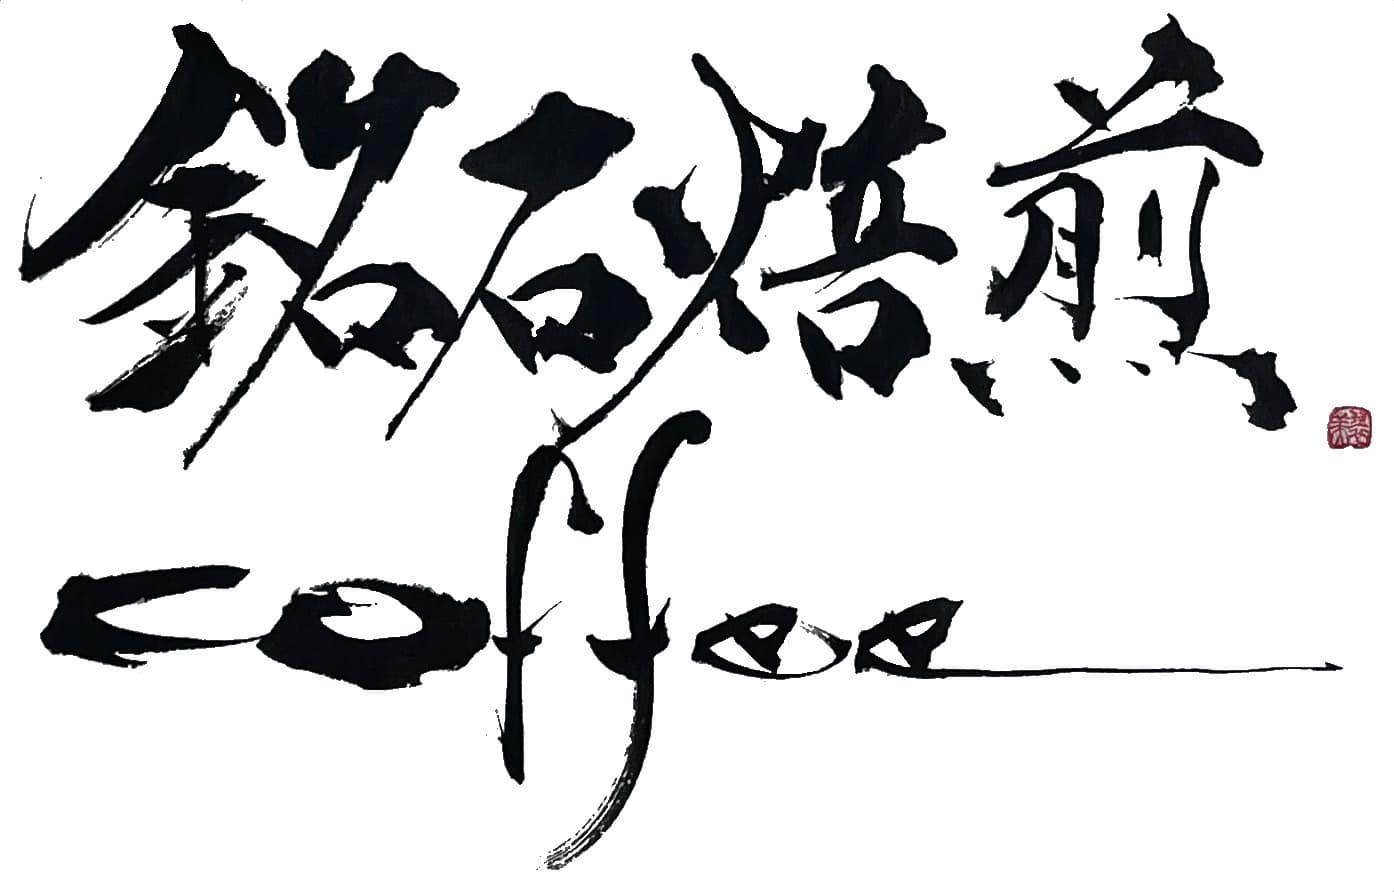 銘石焙煎
coffee